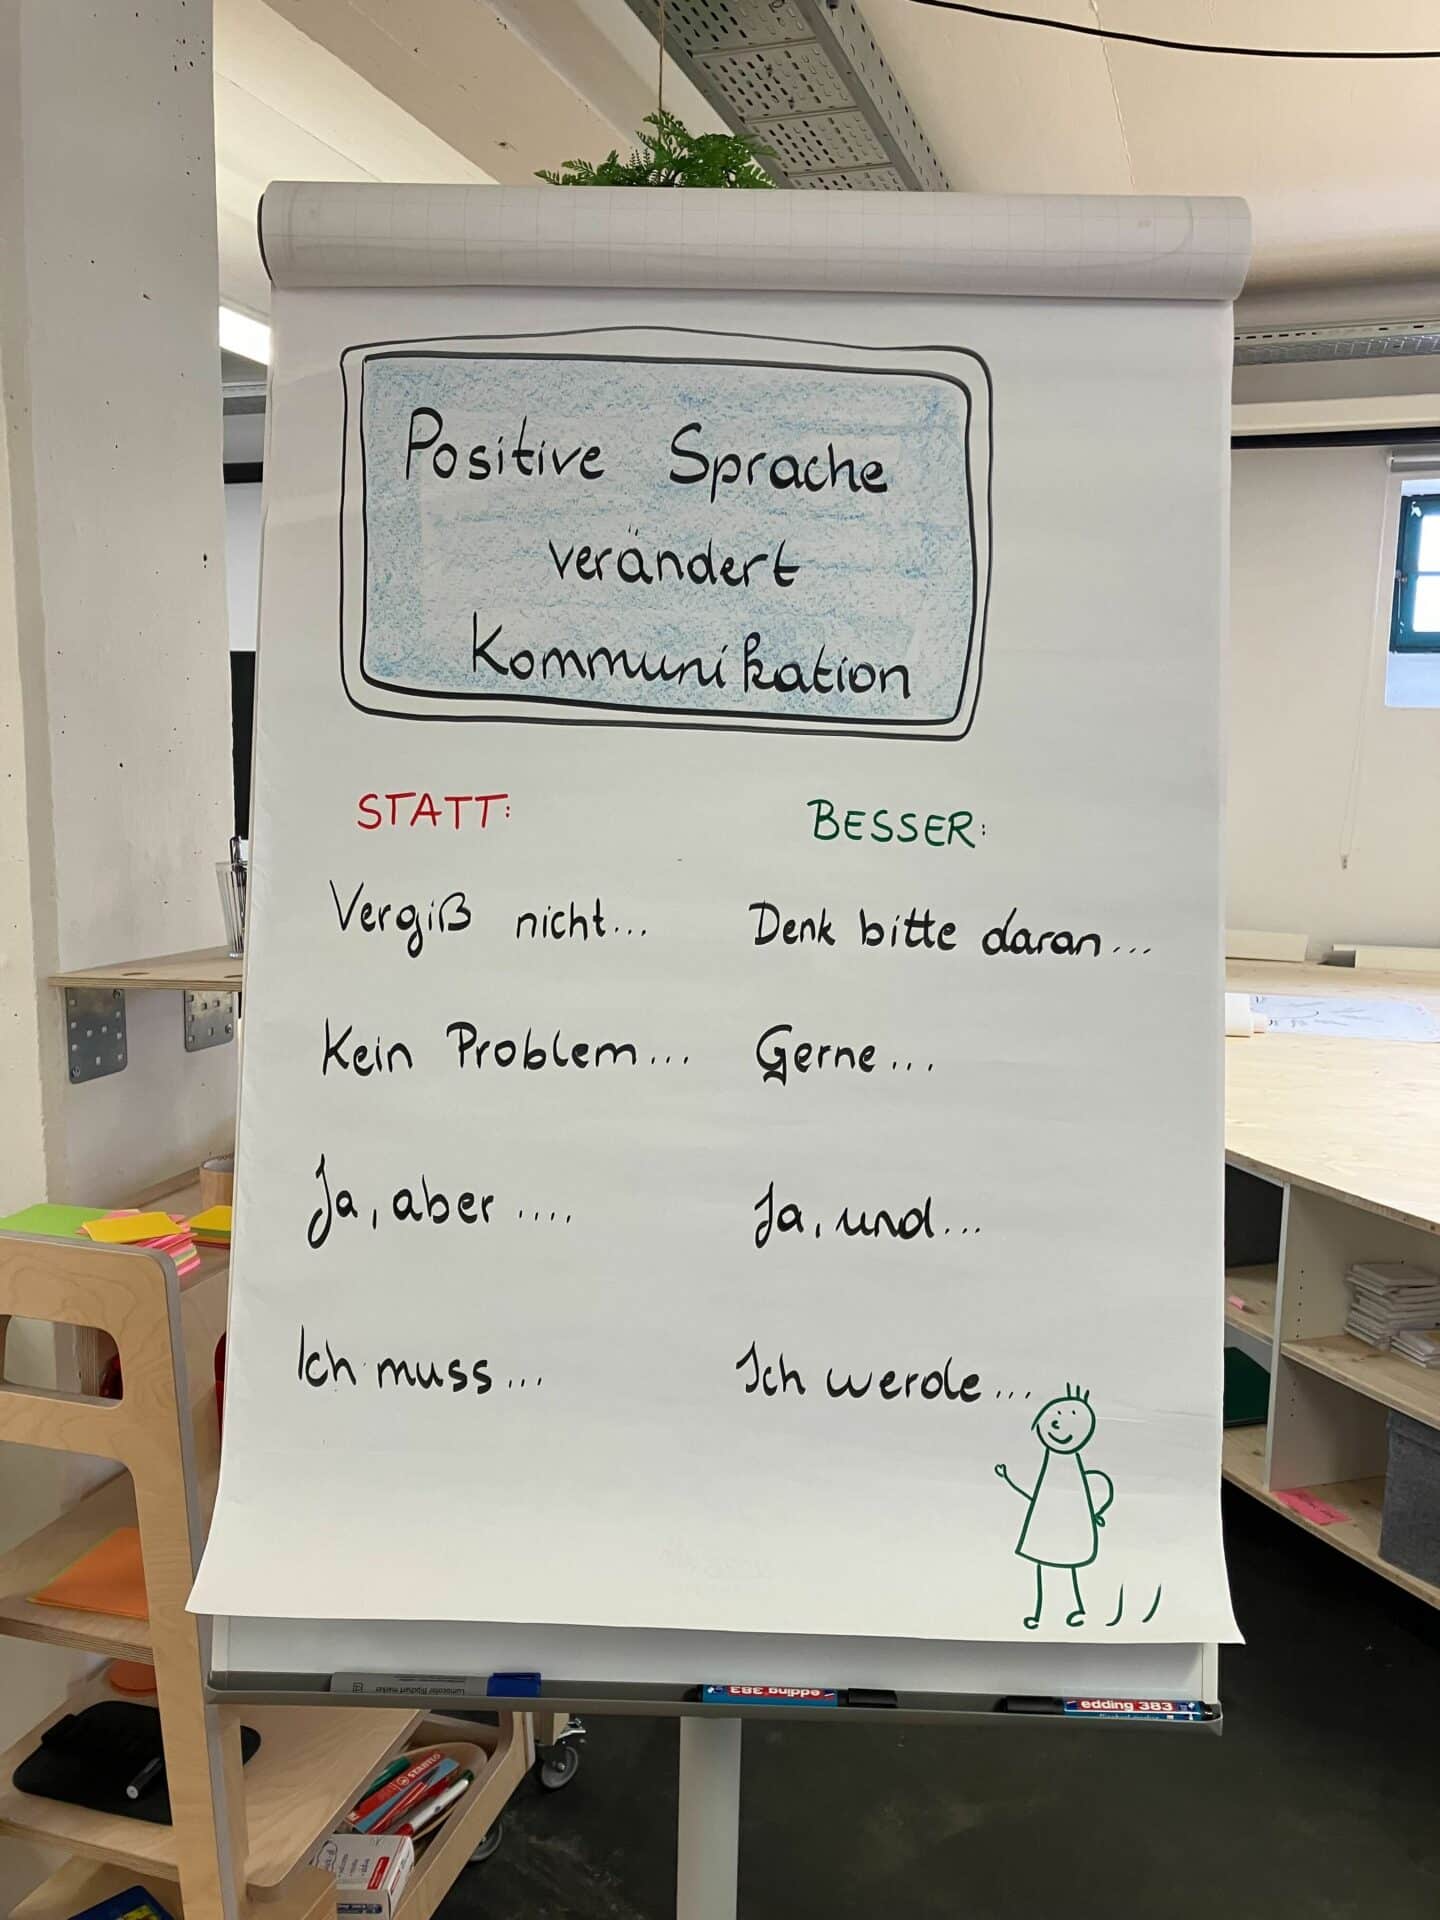 Positive Sprache
verändert
Kommunikation
STATT: BESSER:
Vergiß nicht... Denk bitte daran...
Kein Problem... Gerne...
Ja, aber .... Ja, und...
Ich muss... Ich werde...
Lumocolor flipchart marker
edding 383
edding 383
STABILO